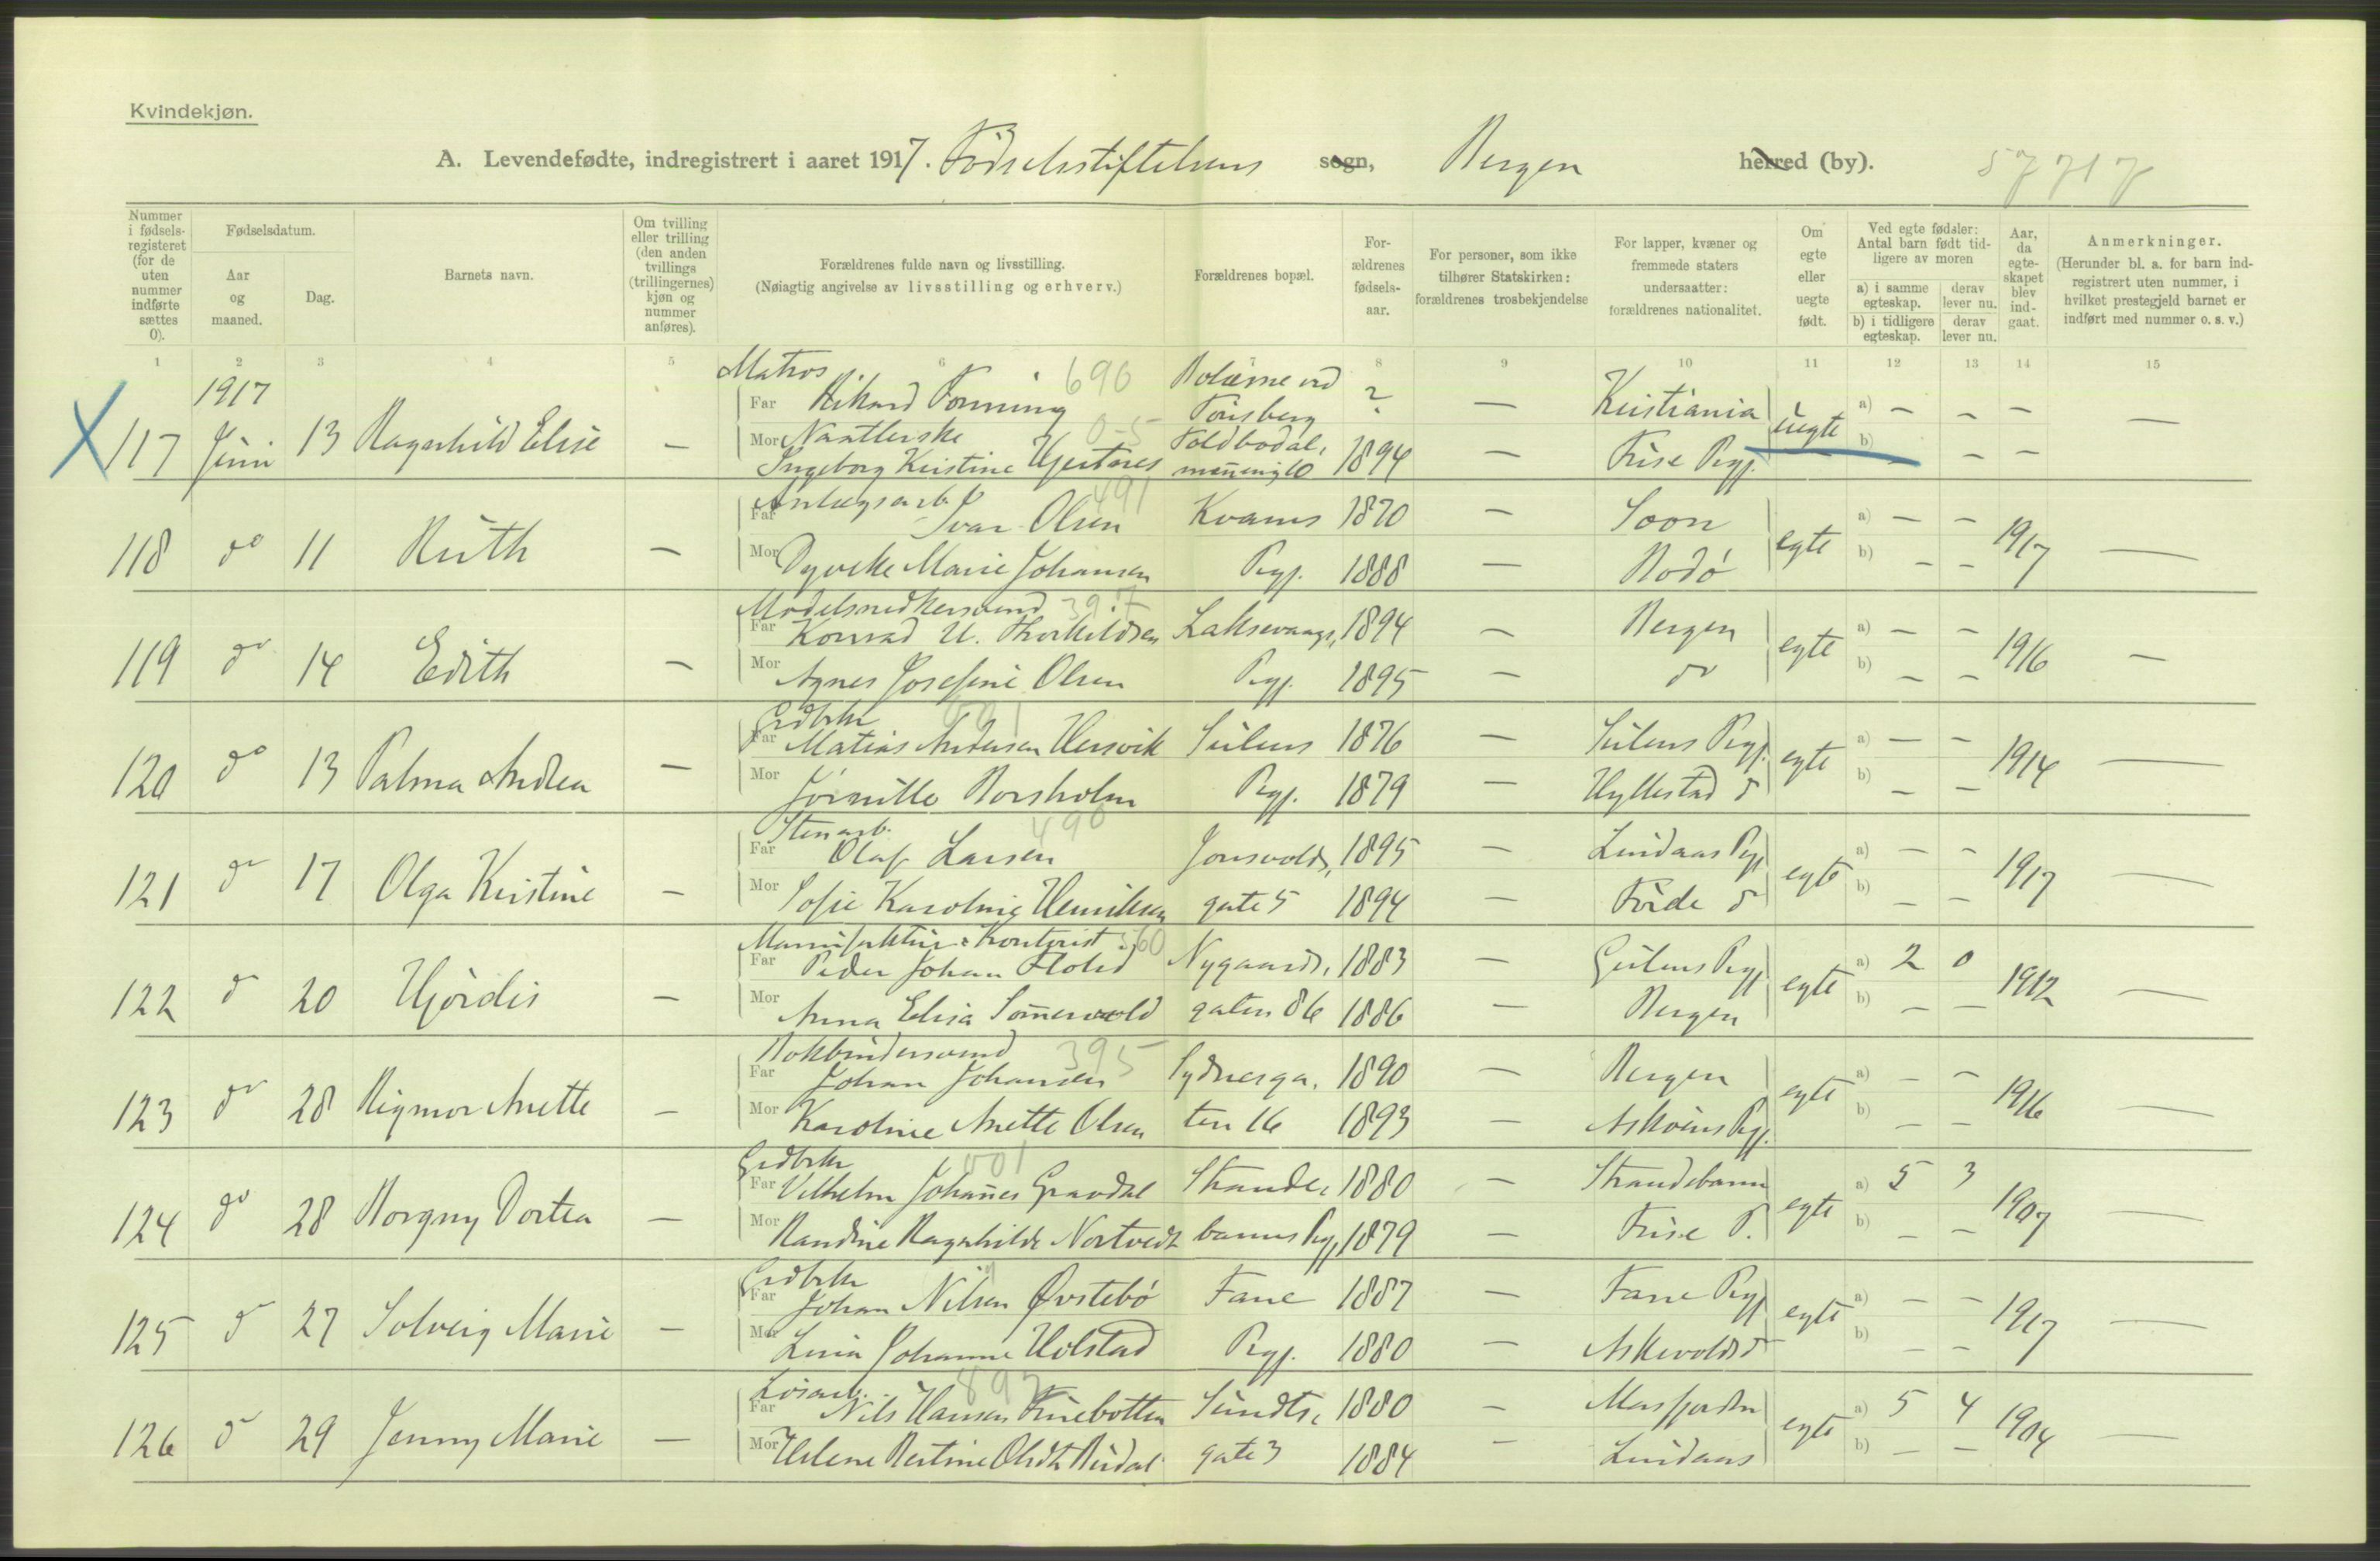 Kvindekjøn.
A. Levendefødte, indregistrert i aaret 1917. Fødselsstiftelsens sogn, Bergen herred (by). 57717
Nummer i fødselsregisteret (for de uten nummer indførte sættes 0).
Fødselsdatum.
Aar og maaned.
Dag.
Barnets navn.
Om tvilling eller trilling (den anden tvillings (trillingernes) kjøn og nummer anføres).
Forældrenes fulde navn og livsstilling.
(Nøiagtig angivelse av livsstilling og erhverv.)
Forældrenes bopæl.
Forældrenes fødselsaar.
For personer, som ikke tilhører Statskirken: forældrenes trosbekjendelse
For lapper, kvæner og fremmede staters undersaatter: forældrenes nationalitet.
Om egte eller uegte født.
Ved egte fødsler: Antal barn født tidligere av moren
a) i samme egteskap. derav lever nu.
b) i tidligere egteskap. derav lever nu.
Aar, da egteskapet blev indgaat.
Anmerkninger.
(Herunder bl. a. for barn indregistrert uten nummer, i hvilket prestegjeld barnet er indført med nummer o. s. v.)
1 2 3 4 5 6 7 8 9 10 11 12 13 14 15
1917 Matros 690
Far Rikard Tønsberg ? — Kristiania a) — — — —
X 117 Juni 13 Ragnhild Elise — uegte
Mor 0-5
Ingeborg Kristine 1894 — Prgj. b) — — —
491
Far Ivar Olsen Kvams 1870 — Soon a) — —
118 do 11 Ruth — egte 1917 —
Mor Dyveke Marie Johansen Prgj. 1888 — Rodø b) — —
Modelsnedkersvend 397
Far Konrad U. Thorkildsen Laksevaags, 1894 — Bergen a) — —
119 do 14 Edith — egte 1916 —
Mor Agnes Josefine Olsen Prgj. 1895 — do b) — —
Grdbrkr 001
Far Matias Andersen Hersvik Sulens 1876 — Sulens Prgj. a) — —
120 do 13 Palma Andrea — egte 1914 —
Mor Prgj. 1879 — Hyllestad d b) — —
Stenarb. 490
Far Olaf Larsen Jonsvolds, 1895 — Lindaas Prgj a) — —
121 do 17 Olga Kristine — egte 1917 —
Mor Sofie Karoline Henriksen gate 5 1894 — Førde d b) — —
Manufaktur: Kontorist 560
Far Peder Johan Nygaards, 1883 — Gulens Prgj a) 2 0
122 d 20 Hjørdis — egte 1912 —
Mor Anna Elisa gaten 86 1886 — Bergen b) — —
Bokbindersvend 395
Far Johan Johansen Sydnesga, 1890 — Bergen a) — —
123 do 28 Rigmor Anette — egte 1916 —
Mor Karoline Anette Olsen ten 16 1893 — Askøens Prgj. b) — —
Grdbrkr 001
Far Vilhelm Johannes Gravdal Strande, 1880 — Strandebarm a) 5 3
124 do 28 Borgny Dortea — egte 1907 —
Mor Randine Ragnhilde Nortvedt barms Prgj, 1879 — d. b) — —
Grdbrkr
Far Johan Nilsen Øvstebø Fane 1887 — Fane Prgj a) — —
125 d 27 Solveig Marie — egte 1917 —
Mor Lina Johanne Holstad Prgj. 1880 — Askevolds d b) — —
Løsarb. 897
Far Nils Hansen Furebotten Sundts, 1880 — Masfjorden a) 5 4
126 d 29 Jenny Marie — egte 1904 —
Mor Helene Bertine gate 3 1884 — Lindaas b) — —